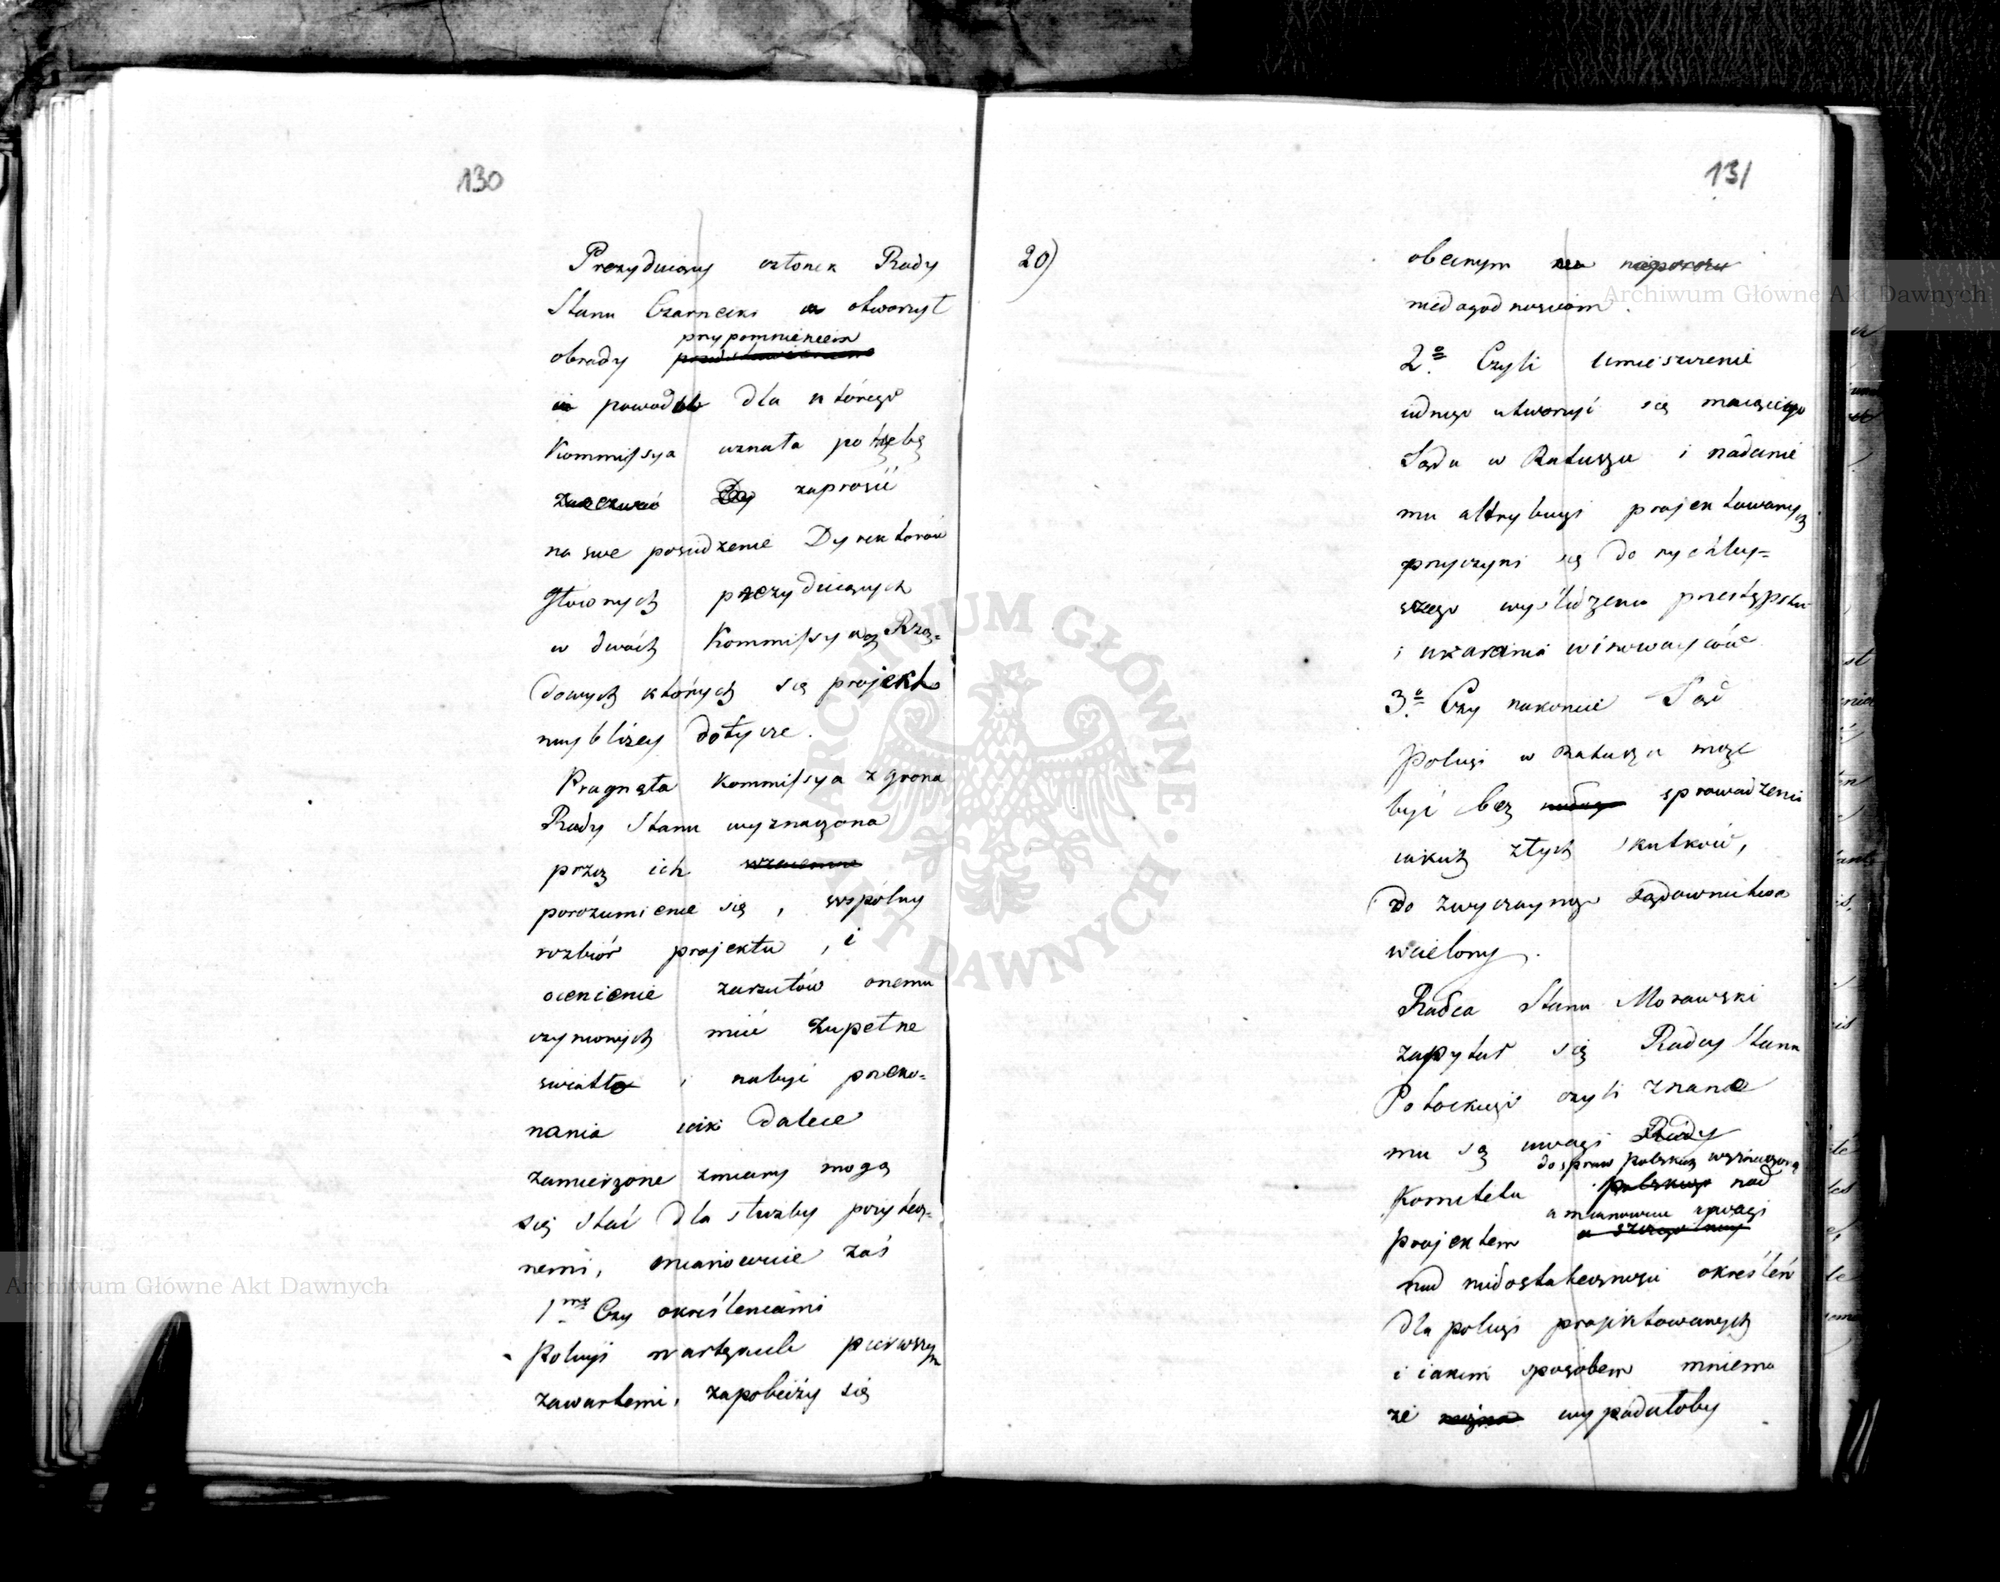 130
Prezyduiący członek Rady
Stanu Czarnecki otworzył
przypomnieniem
obrady
powodu dla którego
Kommissya uznała potrzebę
zaprosić
na swe posiedzenie Dyrektorów
Głównych prezyduiących
w dwóch Kommissyach Rzą-
dowych których się projekt
naybliżey dotycze.
Pragnęła Kommissya z grona
Rady Stanu wyznaczona
przez ich
porozumienie się, wspólny
rozbiór projektu, i
ocenienie zarzutów onemu
czynionych mieć zupełne
światło i nabyć przeko-
nania iak dalece
zamierzone zmiany mogą
się stać dla służby pożytecz-
nemi, mianowicie zaś
1mo Czy określeniami
Policyi w artykule pierwszym
zawartemi, zapobieży się
131
20)
obecnym
niedogodnościom.
2o Czyli umieszczenie
iednego utworzyć się maiącego
Sądu w Ratuszu i nadanie
mu attrybucyi projektowanych
przyczyni się do rychley-
szego wyśledzenia przestępstw
i ukarania winowayców
3o Czy nakoniec Sąd
Policyi w Ratuszu może
być bez sprowadzenia
iakich złych skutków,
do zwyczaynego sądownictwa
wcielony.
Radca Stanu Morawski
zapytał się Radcy Stanu
Potockiego czyli znane
mu są uwagi
do spraw polskich wyznaczonego
Komitetu nad
a mianowicie uwagi
projektem
nad niedostatecznością określeń
dla policyi projektowanych
i iakim sposobem mniema
że wypadałoby
Archiwum Główne Akt Dawnych
Archiwum Główne Akt Dawnych
ARCHIWUM GŁÓWNE AKT DAWNYCH